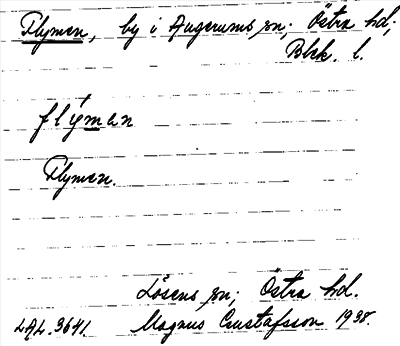 Flymen, by i Augerums sn; Östra hd;
Blek. l.
flýmen
Flymen.
Lösens sn; Östra hd.
LAL.3641. Magnus Gustafsson 1938.